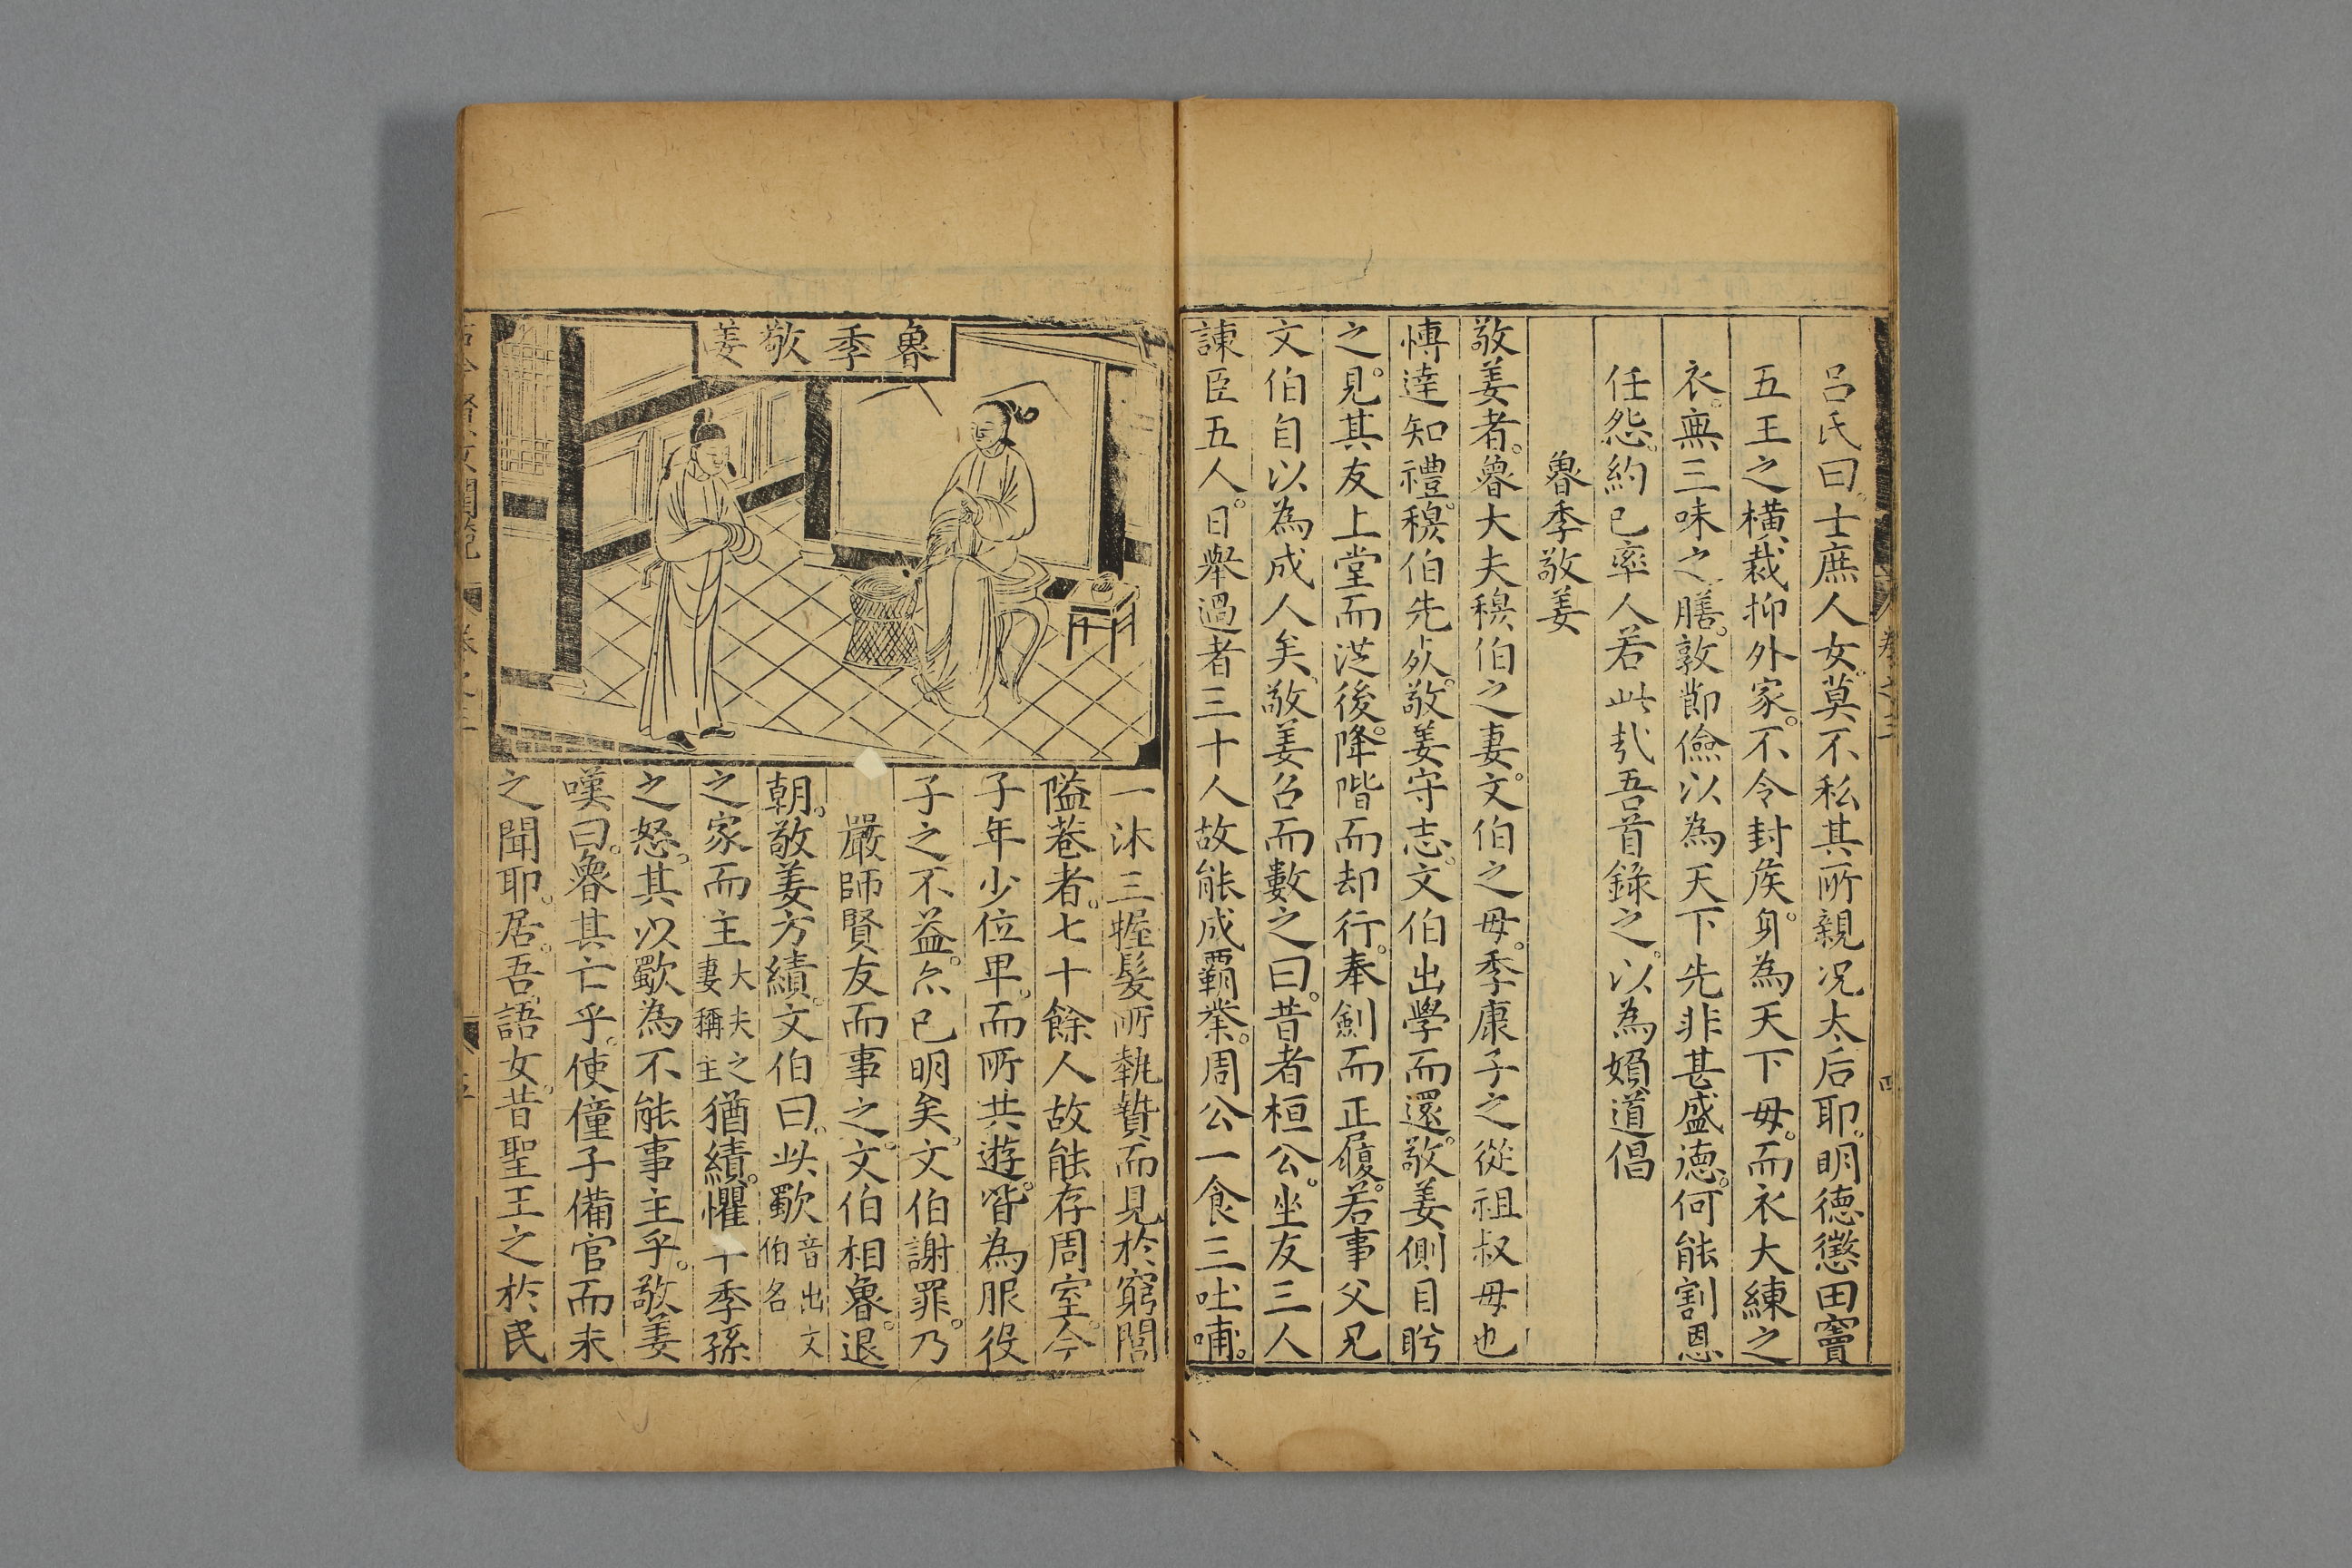 呂氏曰。士庶人女。莫不私其所親况太后耶。明德懲田竇
五王之橫裁抑外家。不令封矦。身為天下毋。而衣大練之
衣。無三味之膳。敦節儉以為天下先非甚盛德。何能割恩
任怨。約已率人若此㢤吾首錄之。以為嫺道倡
魯季敬姜
敬姜者。魯大夫穆伯之妻。文伯之毋。季康子之從祖叔毋也
愽達知禮。穆伯先歿。敬姜守志。文伯出學而還。敬姜側目盻
之。見其友上堂而從後。降階而却行。奉劍而正履。若事父兄
文伯自以為成人矣。敬姜召而數之曰。昔者桓公。坐友三人
諫臣五人。日舉過者三十人故能成覇業。周公一食三吐哺。
一沐三握髮所執贄而見於窮閭
隘巷者。七十餘人故能存周室。今
子年少位卑。而所共遊。皆為服役
子之不益。亦已明矣。文伯謝罪。乃
嚴師賢友而事之。文伯相魯。退
朝。敬姜方績。文伯曰。以歜音出文伯名
之家而主大夫之妻稱主猶績。懼干季孫
之怒。其以歜為不能事主乎。敬姜
嘆曰。魯其亡乎。使僮子備官而未
之聞耶。居。吾語女。昔聖王之於民
魯季敬姜
卷之三
四